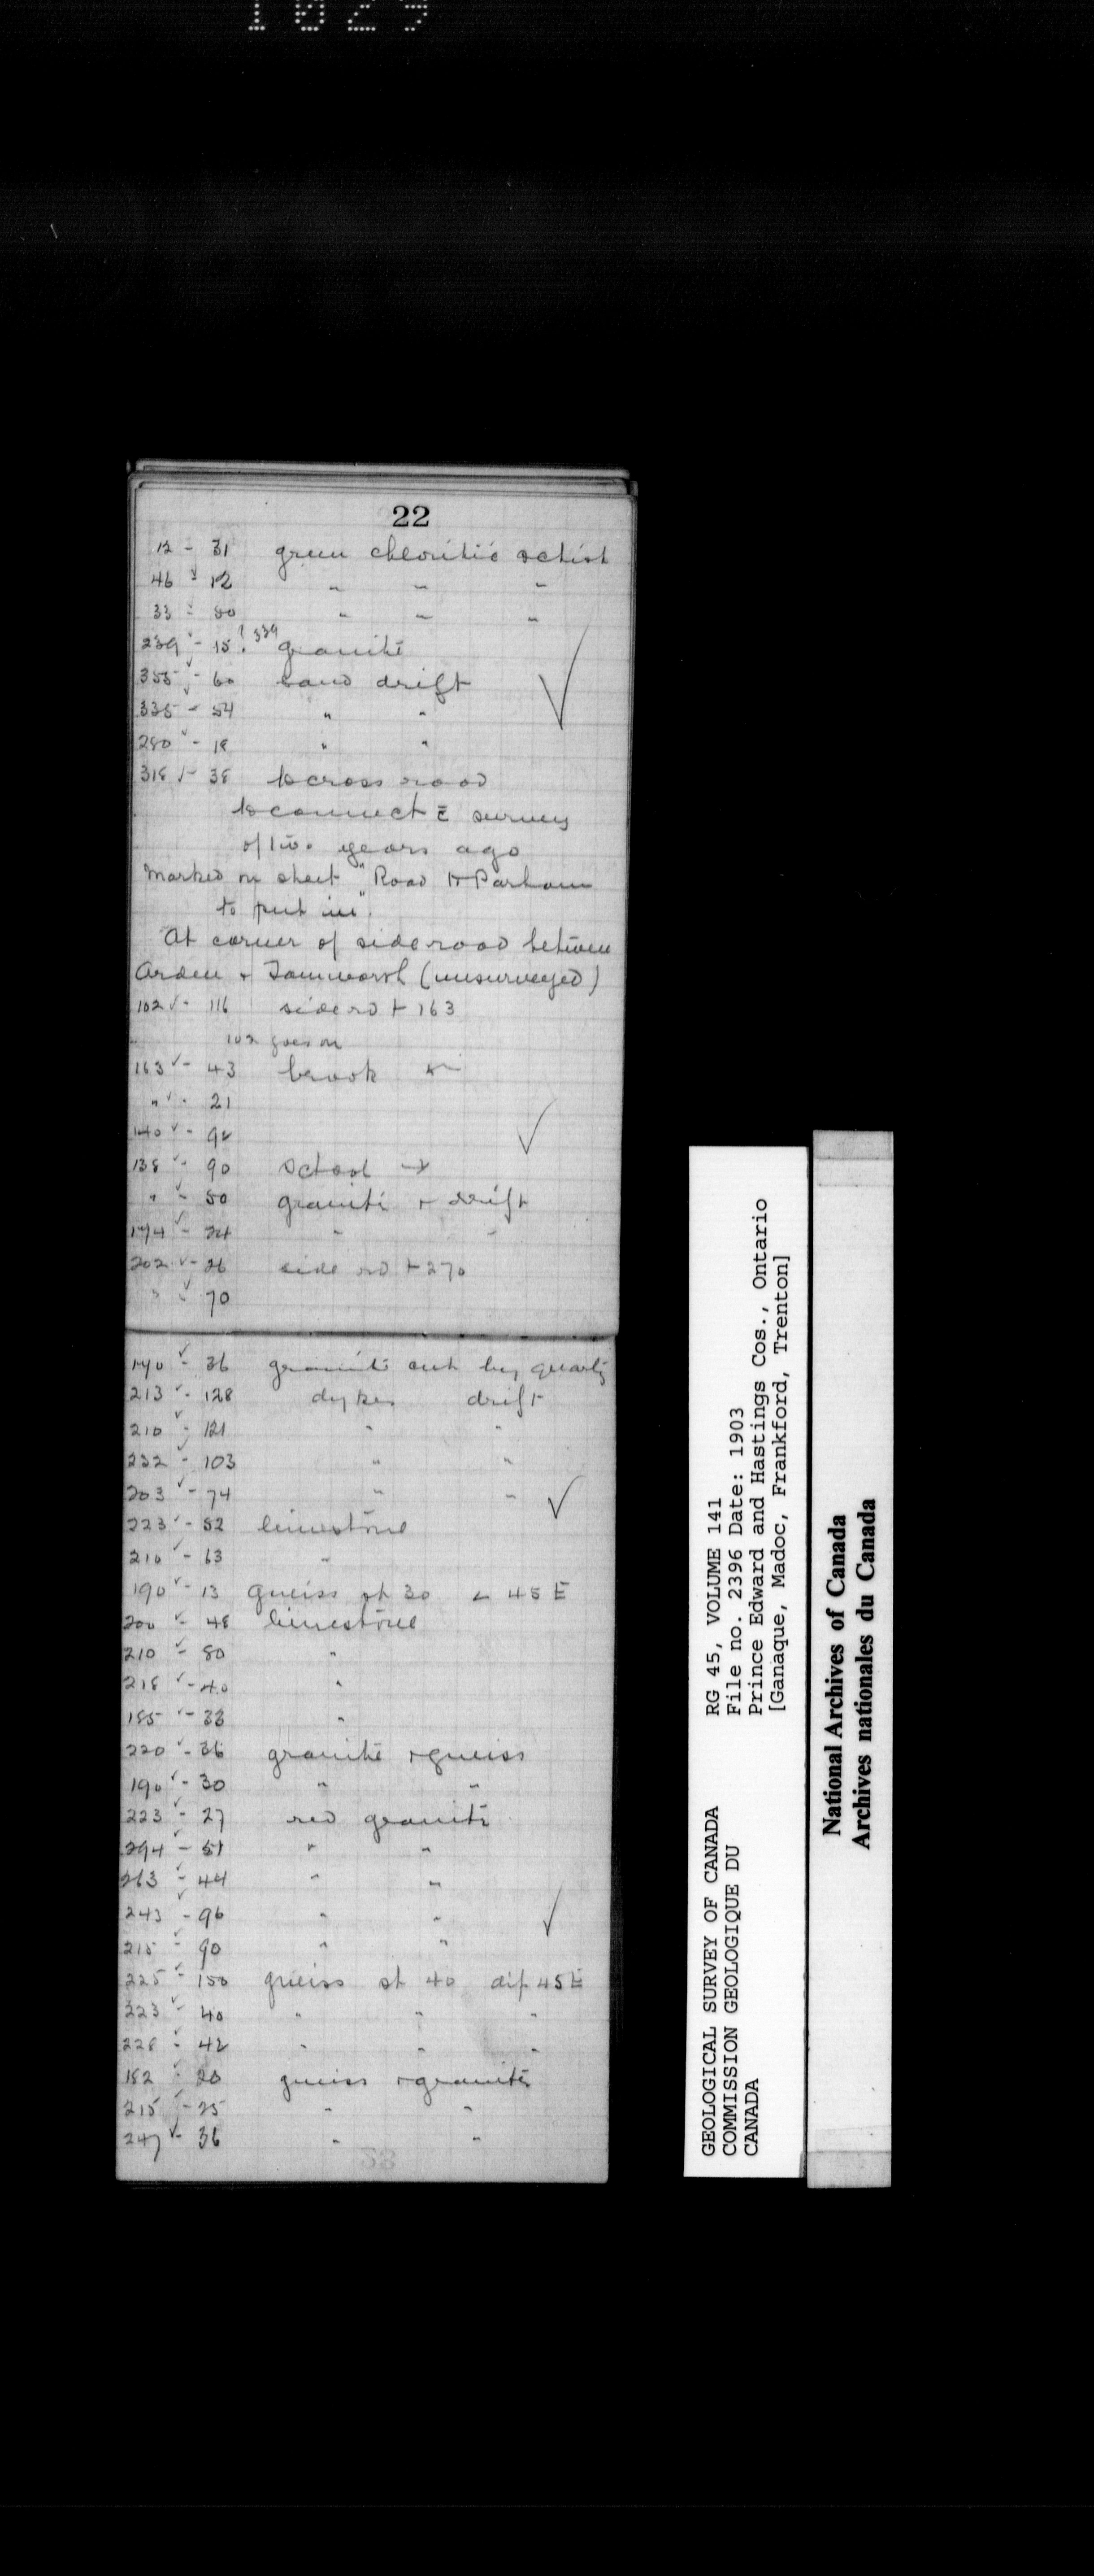 1029
22
12 - 31 green chloritic schist
46 - 12 " " "
33 - 80 " " "
239 - 15 ? 339 granite
355 - 60 sand drift
335 - 54 " "
280 - 18 " "
318 - 38 to cross road
to connect c̄ survey
of two years ago
Marked on sheet "Road to Parham
to put in".
At corner of side road between
Arden + Tamworth (unsurveyed)
102 - 116 side rd + 163
102 goes on
163 - 43 brook ←
" - 21
140 - 92
138 - 90 School →
" - 50 granite + drift
174 - 24 " "
202 - 26 side rd + 270
" - 70
170 - 36 granite cut by quartz
213 - 128 dykes drift
210 - 121 " "
232 - 103 " "
203 - 74 " "
223 - 52 limestone
210 - 63 "
190 - 13 gneiss st 30 < 45 E
200 - 48 limestone
210 - 80 "
218 - 40 "
185 - 33 "
220 - 36 granite + gneiss
190 - 30 " "
223 - 27 red granite
294 - 51 " "
263 - 44 " "
243 - 96 " "
215 - 90 " "
225 - 150 gneiss st 40 dip 45 E
223 - 40 " " "
228 - 42 " " "
182 - 20 gneiss + granite
215 - 25 " "
247 - 36 " "
GEOLOGICAL SURVEY OF CANADA
COMMISSION GEOLOGIQUE DU
CANADA
RG 45, VOLUME 141
File no. 2396 Date: 1903
Prince Edward and Hastings Cos., Ontario
[Ganaque, Madoc, Frankford, Trenton]
National Archives of Canada
Archives nationales du Canada